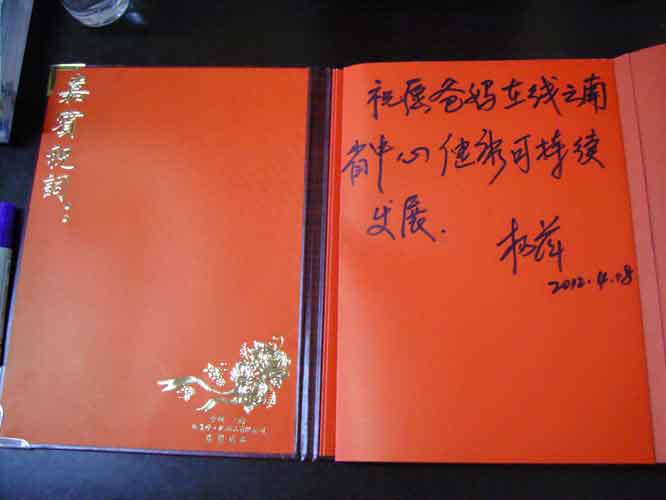 嘉賓祝詞：
祝愿爸妈在线云南
省中心健康可持续
发展.
杨萍
2012.4.18